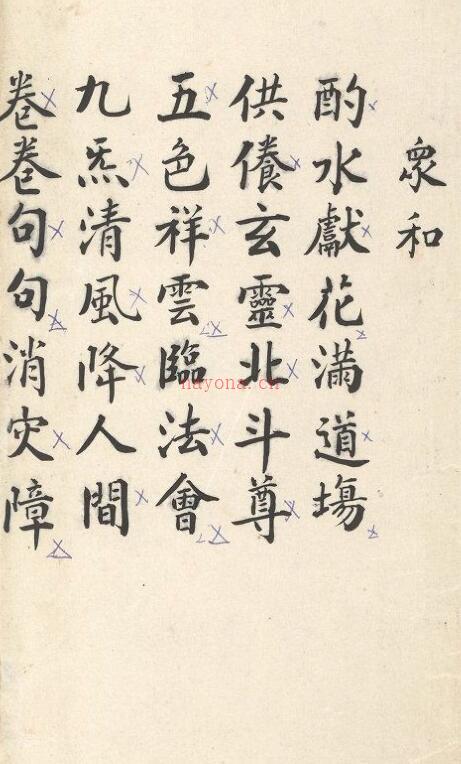 眾和
酌水獻花滿道塲
供飬玄靈北斗尊
五色祥雲臨法會
九炁清風降人間
卷卷句句消灾障
nayona.cn